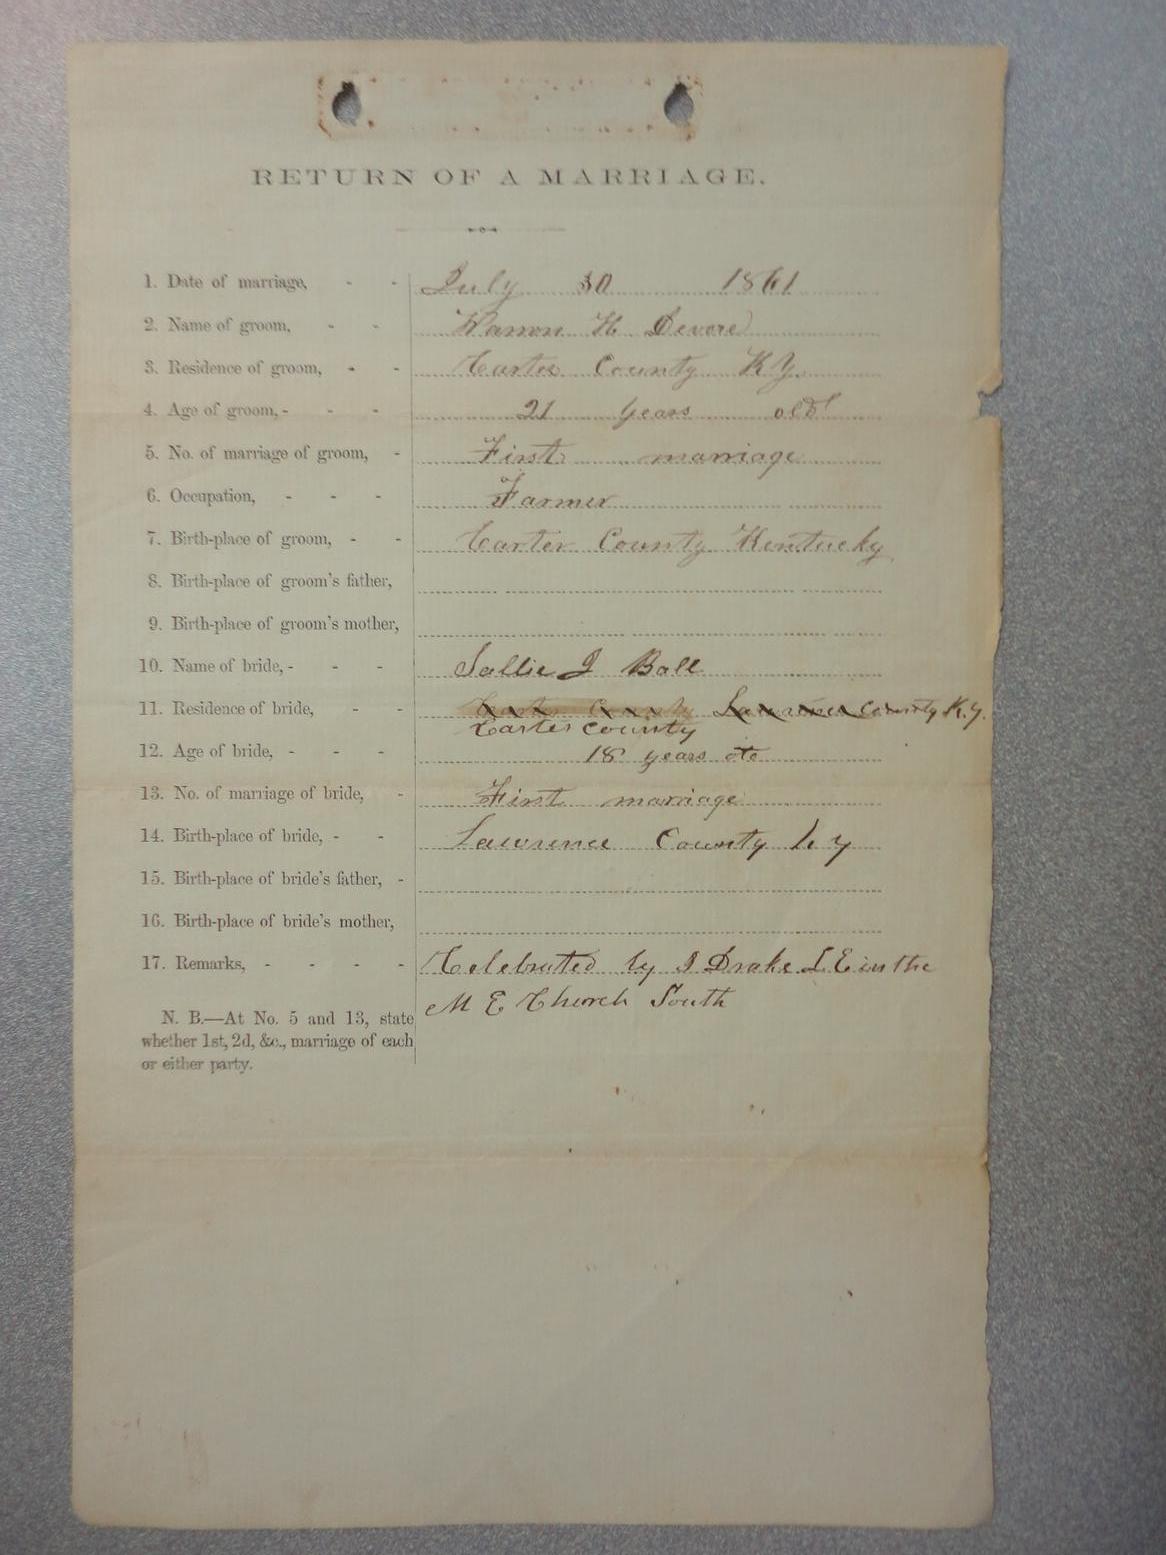 RETURN OF A MARRIAGE.
1. Date of marriage, - - July 30 1861
2. Name of groom, - - H Devore
3. Residence of groom, - - Carter County K.Y.
4. Age of groom, - - - 21 years old
5. No. of marriage of groom, - First marriage
6. Occupation, - - - Farmer
7. Birth-place of groom, - - Carter County Kentucky
8. Birth-place of groom's father,
9. Birth-place of groom's mother,
10. Name of bride, - - - Sallie J Ball
11. Residence of bride, - - Carter County Lawrence County K.y.
Carter County
12. Age of bride, - - - 18 years
13. No. of marriage of bride, - First marriage
14. Birth-place of bride, - - Lawrence County Ky
15. Birth-place of bride's father, -
16. Birth-place of bride's mother,
17. Remarks, - - - - Celebrated by J Drake L E in the
M E Church South
N. B.—At No. 5 and 13, state
whether 1st, 2d, &c., marriage of each
or either party.